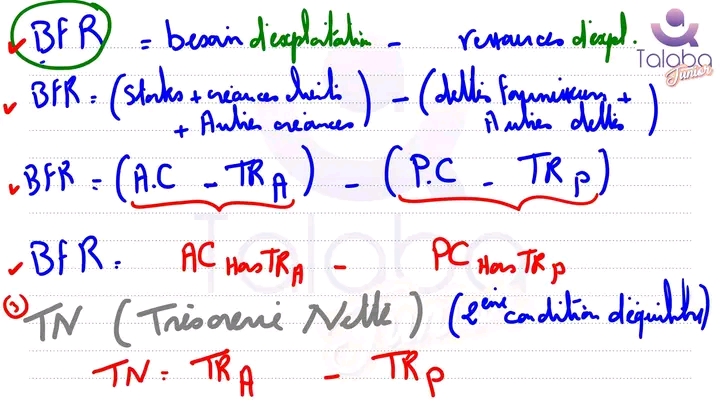 BFR = besoin d'exploitation - ressources d'expl.
Talaba
Junior
BFR = (Stocks + créances clients + Autres créances) - (dettes fournisseurs + Autres dettes)
BFR = (A.C - TR A) - (P.C - TR P)
BFR = AC Hors TR A - PC Hors TR P
③ TN (Trésorerie Nette) (2ème condition d'équilibre)
TN = TR A - TR P
Talaba